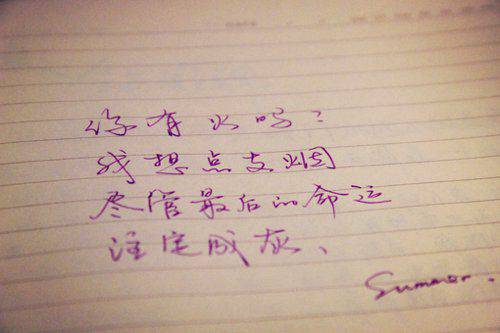 你有火吗？
我想点支烟
尽管最后的命运
注定成灰、
Summer.